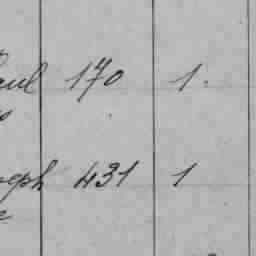 aul 170 1.
seph 431 1